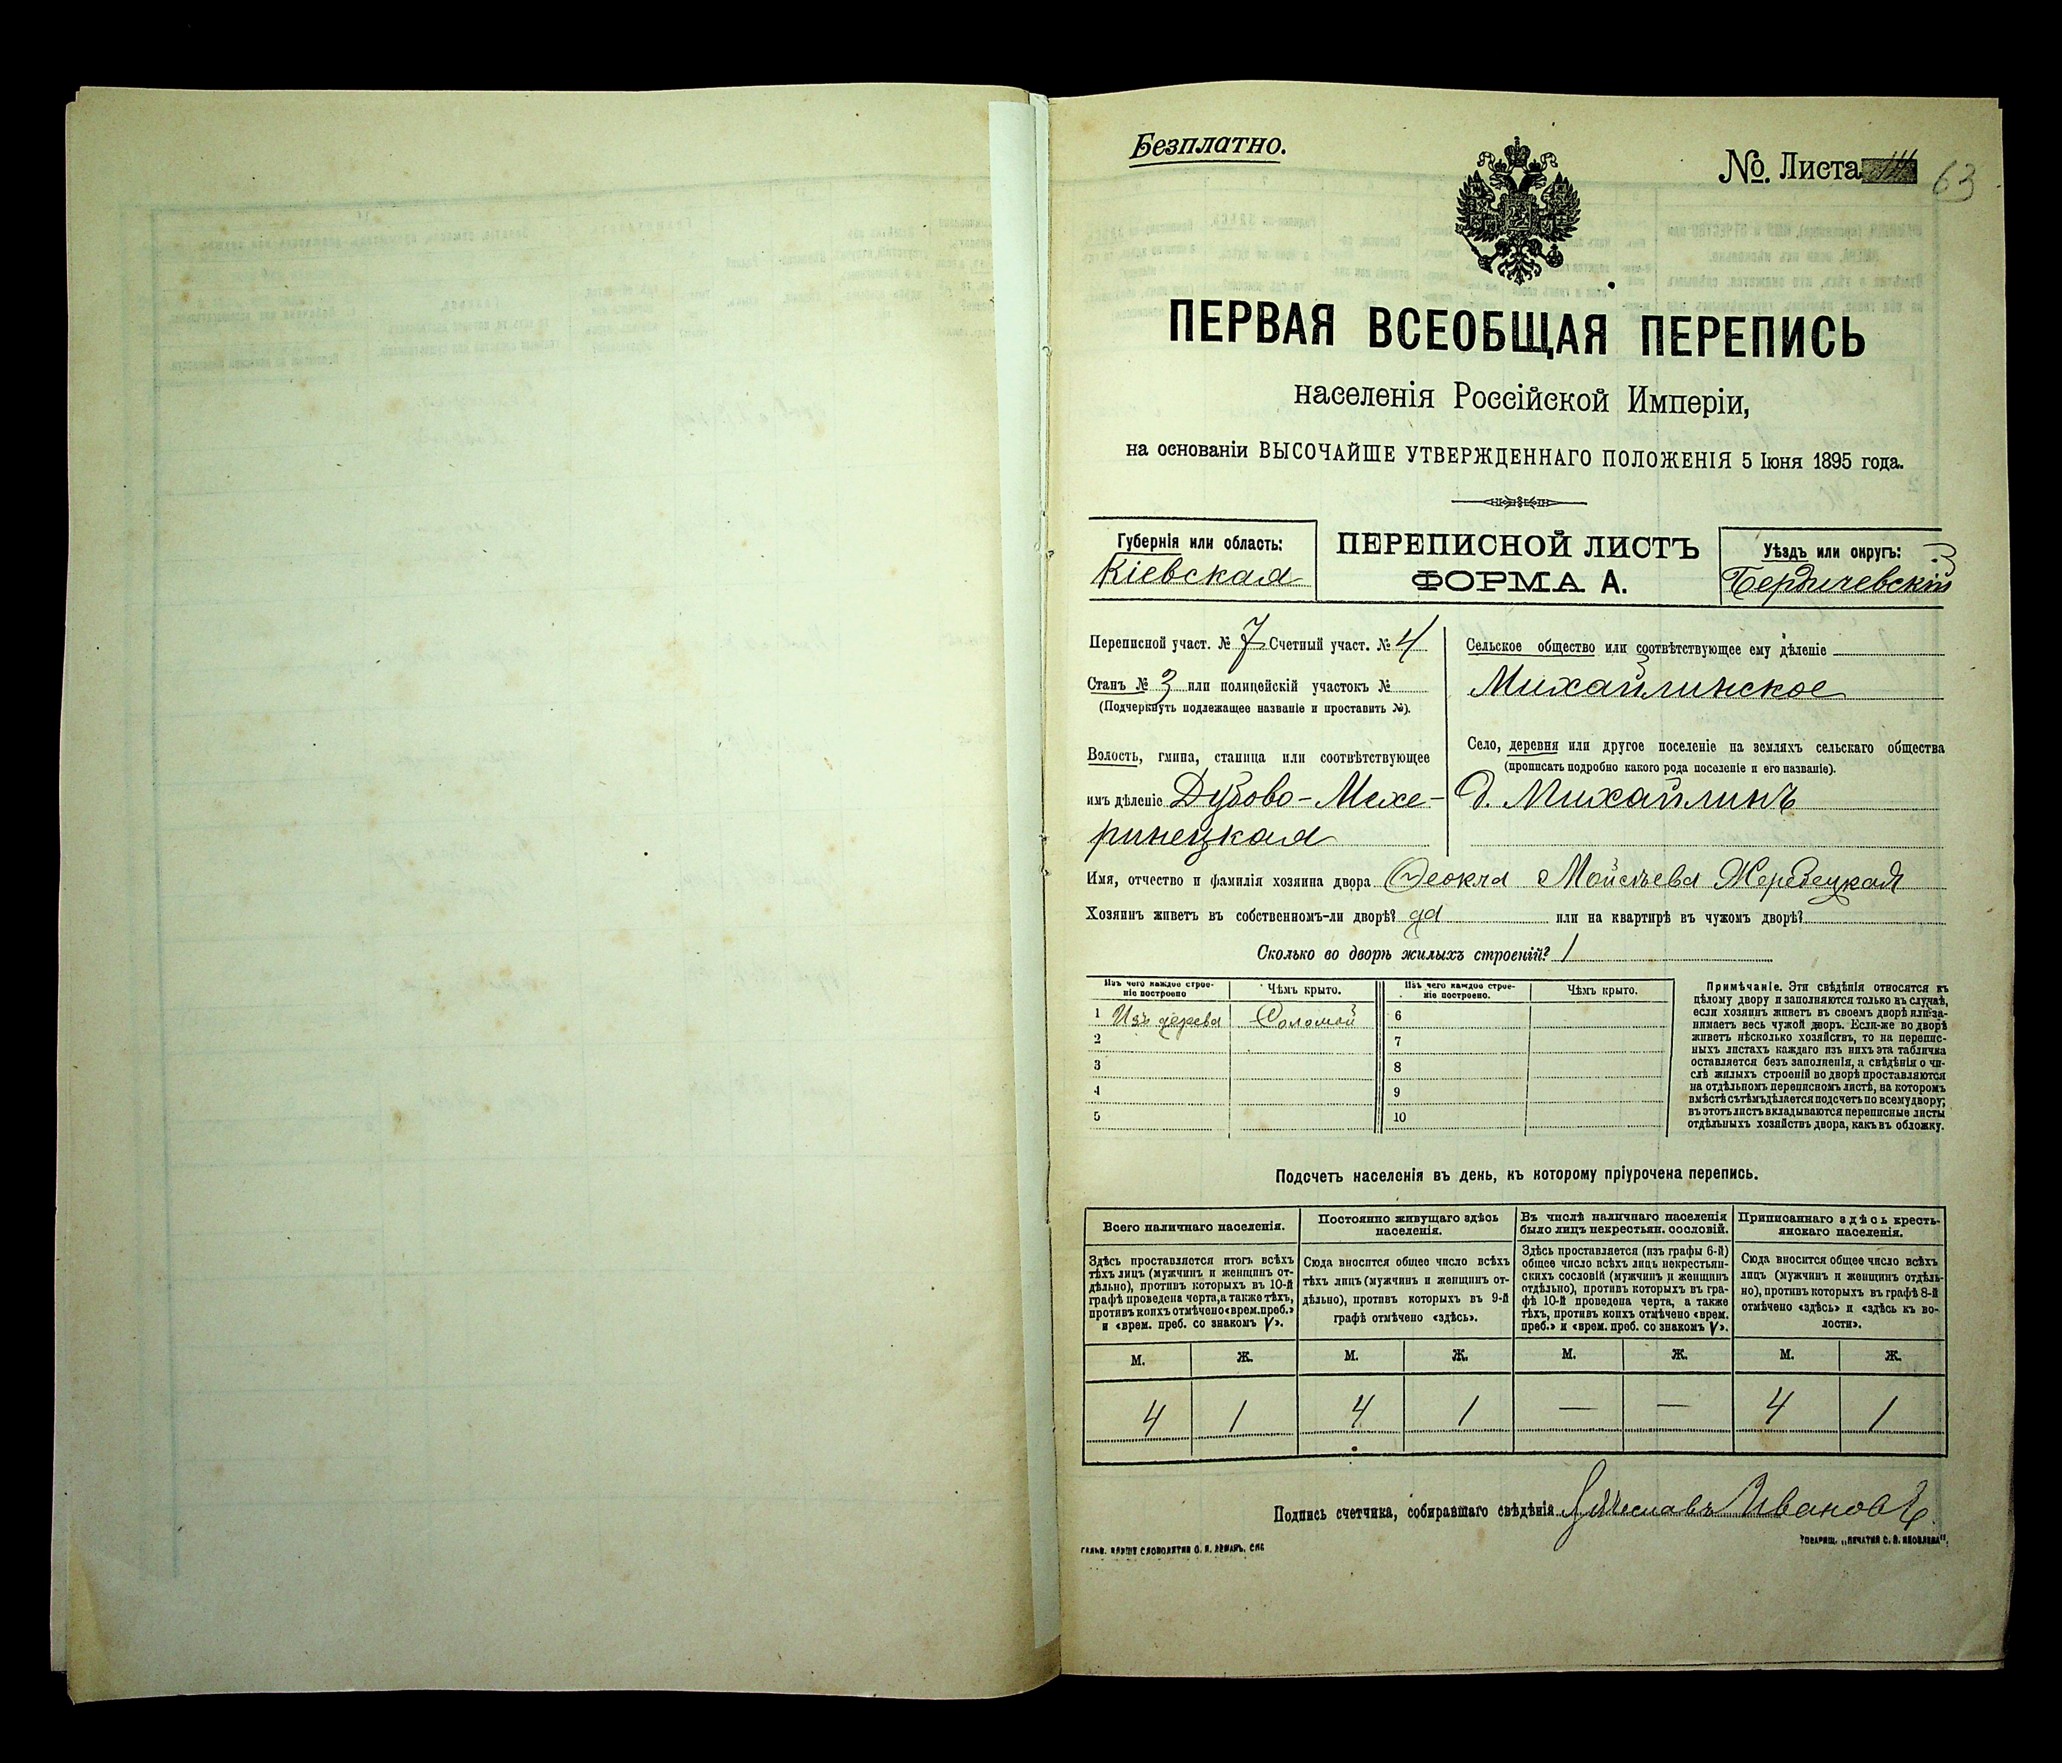 Безплатно.
№ Листа 63
ПЕРВАЯ ВСЕОБЩАЯ ПЕРЕПИСЬ
населенія Россійской Имперіи,
на основаніи ВЫСОЧАЙШЕ УТВЕРЖДЕННАГО ПОЛОЖЕНІЯ 5 Іюня 1895 года.
Губернія или область:
Кіевская
ПЕРЕПИСНОЙ ЛИСТЪ
ФОРМА А.
Уѣздъ или округъ:
Бердичевскій
Переписной участ. № 7 Счетный участ. № 4
Станъ № 3 или полицейскій участокъ №
(Подчеркнуть подлежащее названіе и проставить №).
Волость, гмина, станица или соотвѣтствующее
имъ дѣленіе Дубово-Меже-
ринецкая
Сельское общество или соотвѣтствующее ему дѣленіе
Михайлинское
Село, деревня или другое поселеніе на земляхъ сельскаго общества
(прописать подробно какого рода поселеніе и его названіе).
д. Михайлинъ
Имя, отчество и фамилія хозяина двора Феокла Мойсѣева Жеребецкая
Хозяинъ живетъ въ собственномъ-ли дворѣ? да или на квартирѣ въ чужомъ дворѣ?
Сколько во дворѣ жилыхъ строеній? 1
Изъ чего каждое строе-
ніе построено
Чѣмъ крыто.
Изъ чего каждое строе-
ніе построено.
Чѣмъ крыто.
1 Изъ дерева Соломой 6
2 7
3 8
4 9
5 10
Примѣчаніе. Эти свѣдѣнія относятся къ
цѣлому двору и заполняются только въ случаѣ,
если хозяинъ живетъ въ своемъ дворѣ или за-
нимаетъ весь чужой дворъ. Если-же во дворѣ
живетъ нѣсколько хозяйствъ, то на перепис-
ныхъ листахъ каждаго изъ нихъ эта табличка
оставляется безъ заполненія, а свѣдѣнія о чи-
слѣ жилыхъ строеній во дворѣ проставляются
на отдѣльномъ переписномъ листѣ, на которомъ
вмѣстѣ съ тѣмъ дѣлается подсчетъ по всему двору;
въ этотъ листъ вкладываются переписные листы
отдѣльныхъ хозяйствъ двора, какъ въ обложку.
Подсчетъ населенія въ день, къ которому пріурочена перепись.
Всего наличнаго населенія.
Здѣсь проставляется итогъ всѣхъ
тѣхъ лицъ (мужчинъ и женщинъ от-
дѣльно), противъ которыхъ въ 10-й
графѣ проведена черта, а также тѣхъ,
противъ коихъ отмѣчено «врем. преб.»
и «врем. преб. со знакомъ V».
Постоянно живущаго здѣсь
населенія.
Сюда вносится общее число всѣхъ
тѣхъ лицъ (мужчинъ и женщинъ от-
дѣльно), противъ которыхъ въ 9-й
графѣ отмѣчено «здѣсь».
Въ числѣ наличнаго населенія
было лицъ некрестьян. сословій.
Здѣсь проставляется (изъ графы 6-й)
общее число всѣхъ лицъ некрестьян-
скихъ сословій (мужчинъ и женщинъ
отдѣльно), противъ которыхъ въ гра-
фѣ 10-й проведена черта, а также
тѣхъ, противъ коихъ отмѣчено «врем.
преб.» и «врем. преб. со знакомъ V».
Приписаннаго здѣсь кресть-
янскаго населенія.
Сюда вносится общее число всѣхъ
лицъ (мужчинъ и женщинъ отдѣль-
но), противъ которыхъ въ графѣ 8-й
отмѣчено «здѣсь» и «здѣсь къ во-
лости».
М. Ж. М. Ж. М. Ж. М. Ж.
4 1 4 1 — — 4 1
Подпись счетчика, собиравшаго свѣдѣнія Ивановъ
Товарищ. „Печатня С. П. Яковлева".